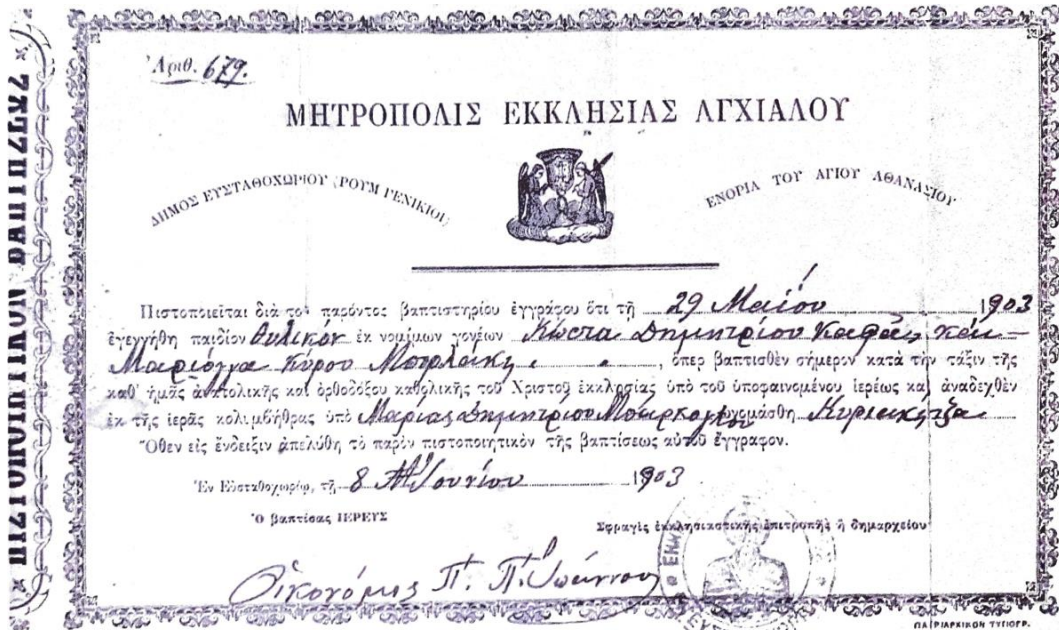 ΠΙΣΤΟΠΟΙΗΤΙΚΟΝ ΒΑΠΤΙΣΕΩΣ
Ἀριθ. 679.
ΜΗΤΡΟΠΟΛΙΣ ΕΚΚΛΗΣΙΑΣ ΑΓΧΙΑΛΟΥ
ΔΗΜΟΣ ΕΥΣΤΑΘΟΧΩΡΙΟΥ (ΡΟΥΜ ΓΕΝΙΚΙΟΙ)
ΕΝΟΡΙΑ ΤΟΥ ΑΓΙΟΥ ΑΘΑΝΑΣΙΟΥ
Πιστοποιεῖται διὰ τοῦ παρόντος βαπτιστηρίου ἐγγράφου ὅτι τῇ 29 Μαΐου 1903
ἐγεννήθη παιδίον θυλικόν ἐκ νομίμων γονέων Κώστα Δημητρίου καὶ
Μαριόγα Κύρου , ὅπερ βαπτισθὲν σήμερον κατὰ τὴν τάξιν τῆς
καθ' ἡμᾶς ἀνατολικῆς καὶ ὀρθοδόξου καθολικῆς τοῦ Χριστοῦ ἐκκλησίας ὑπὸ τοῦ ὑποφαινομένου ἱερέως καὶ ἀναδεχθὲν
ἐκ τῆς ἱερᾶς κολιμβήθρας ὑπὸ Μαρίας Δημητρίου ὠνομάσθη
Ὅθεν εἰς ἔνδειξιν ἀπελύθη τὸ παρὸν πιστοποιητικὸν τῆς βαπτίσεως αὐτοῦ ἔγγραφον.
Ἐν Εὐσταθοχωρίῳ, τῇ 8 Ἰουνίου 1903
Ὁ βαπτίσας ΙΕΡΕΥΣ
Σφραγὶς ἐκκλησιαστικῆς ἐπιτροπῆς ἢ δημαρχείου
Οἰκονόμος Π. Π. Ἰωάννου
ΠΑΤΡΙΑΡΧΙΚΟΝ ΤΥΠΟΓΡ.